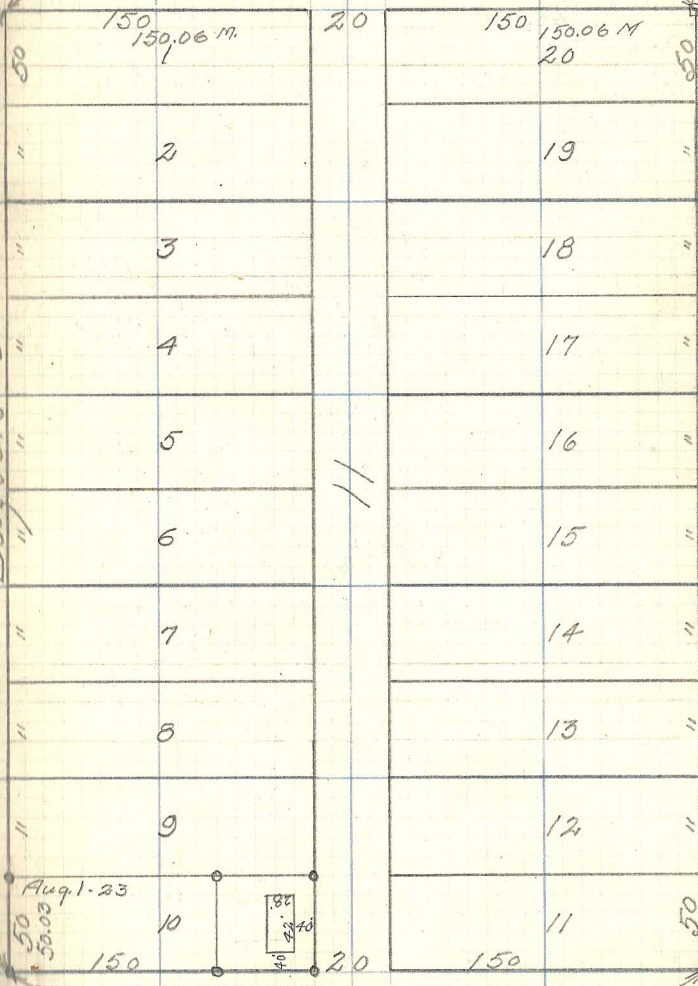 150 20 150
150.06 M. 150.06 M
50 1 20 50
" 2 19 "
" 3 18 "
" 4 17 "
" 5 16 "
11
" 6 15 "
" 7 14 "
" 8 13 "
" 9 12 "
Aug. 1-23
50 50.03 10 42' 11 50
150 20 150